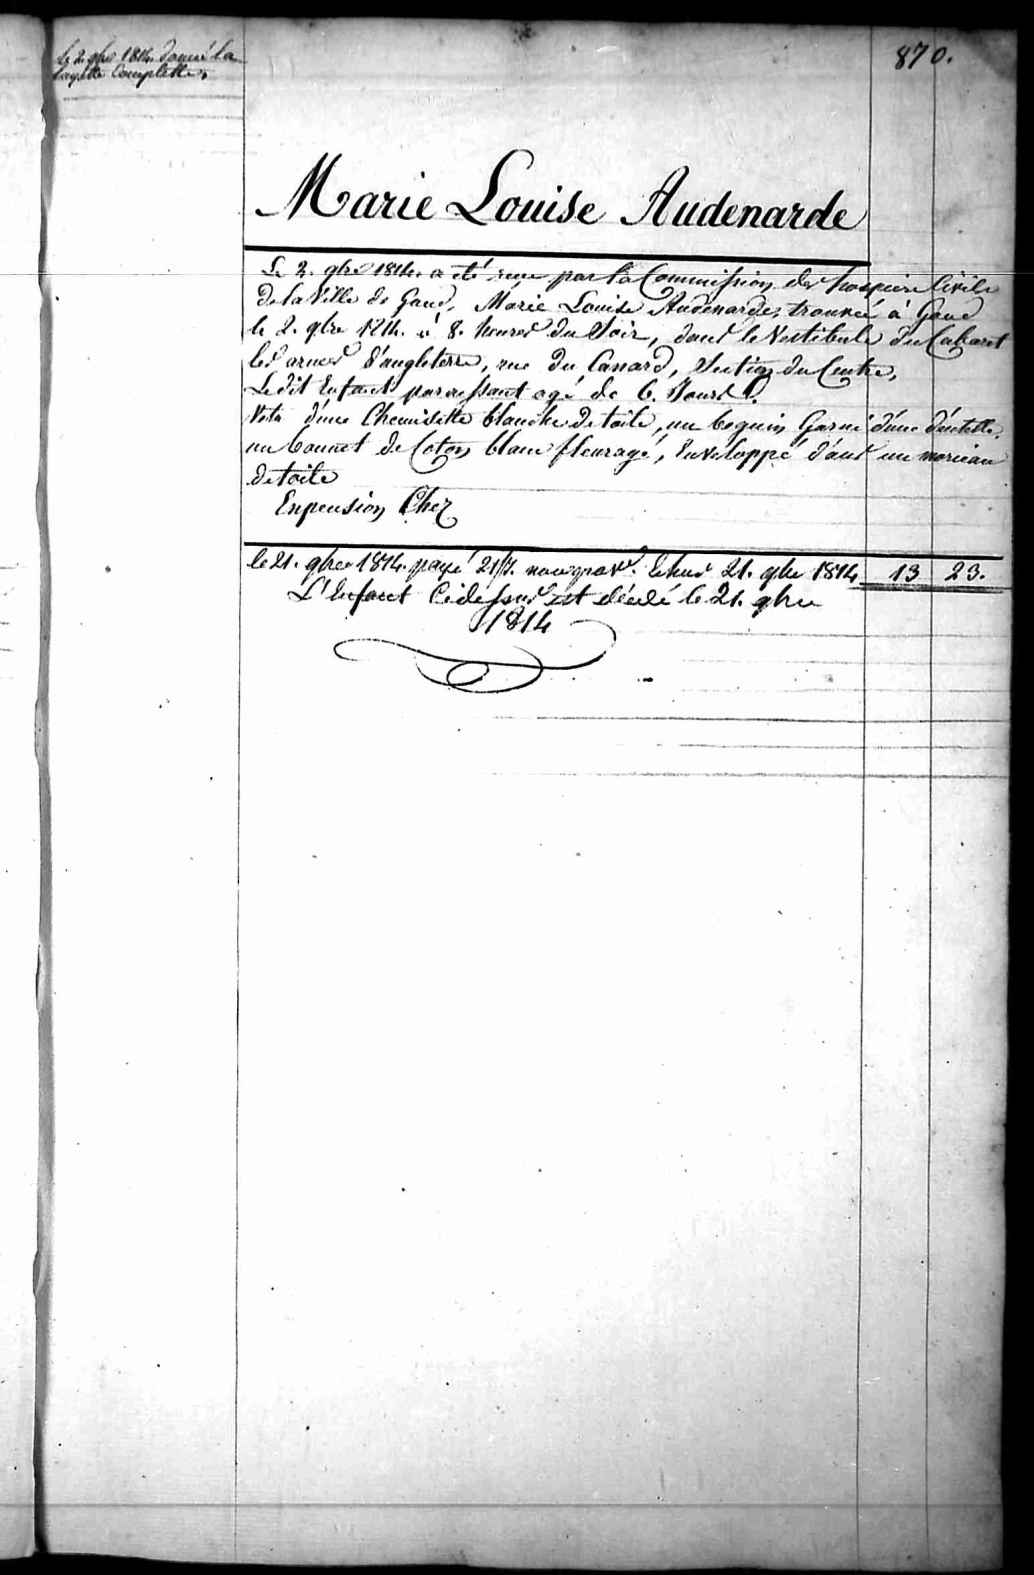 le 2. gbre 1814. donné la
layette Complette.
870.
Marie Louise Audenarde
Le 2. gbre 1814. a été reçue par la Commission des hospices Civils
de la Ville de Gand, Marie Louise Audenarde, trouvée à Gand
le 2. gbre 1814. à 8. heures du Soir, dans le Vestibule du Cabaret
les armes d'angleterre, rue du Canard, Section du Centre,
Ledit Enfant paraissant agé de 6. Jours.
Vetu d'une Chemisette blanche de toile, un beguin Garni d'une dentelle,
un bonnet de Coton blanc fleuragé, Enveloppé dans un morceau
de toile
Enpension Chez
le 21. gbre 1814. payé 21/j. Echus 21. gbre 1814 13 23.
L'Enfant Cidessus est décédé le 21. gbre
1814